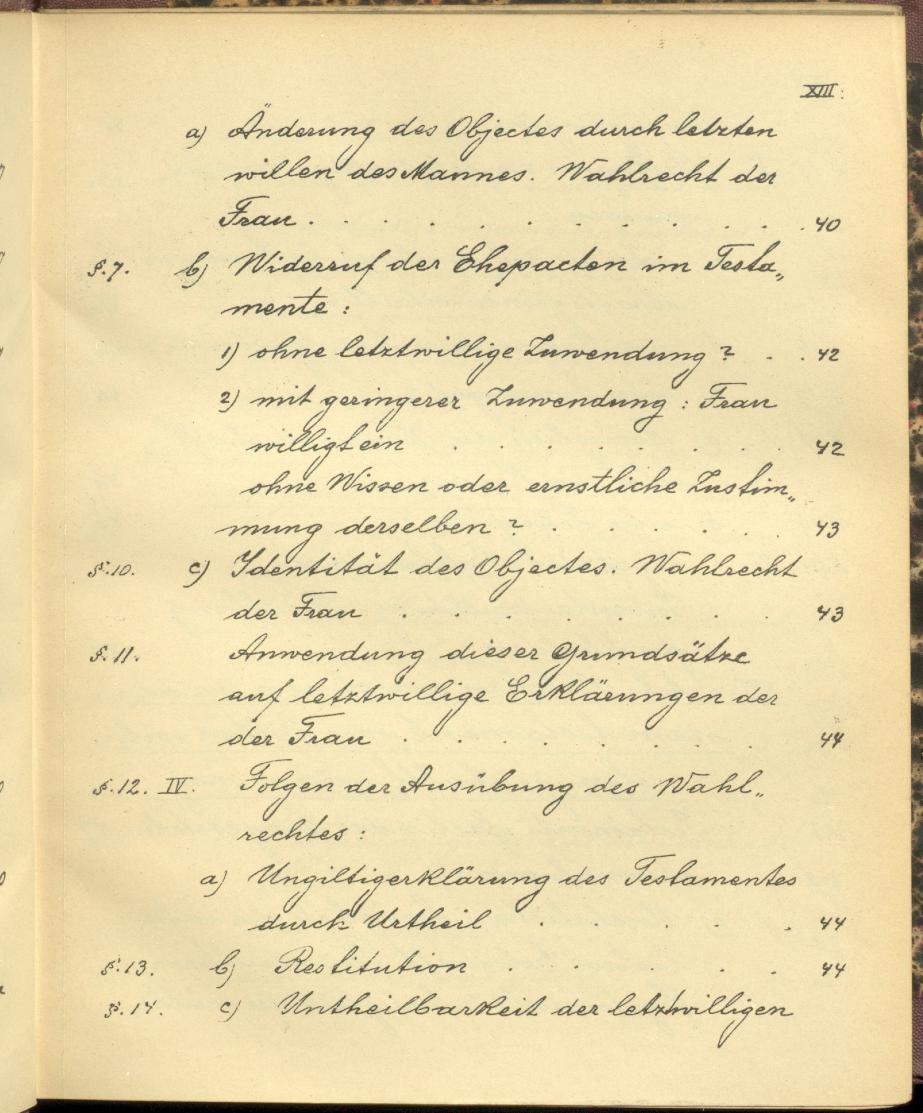 XIII.
a) Änderung des Objectes durch letzten
willen des Mannes. Wahlrecht der
Frau . . . . . . . . . . . 40
§.7. b) Widerruf der Ehepacten im Testa„
mente :
1) ohne letztwillige Zuwendung ? . . 42
2) mit geringerer Zuwendung : Frau
willigt ein . . . . . . . 42
ohne Wissen oder ernstliche Zustim„
mung derselben ? . . . . . . 43
§.10. c) Identität des Objectes. Wahlrecht
der Frau . . . . . . . . 43
§.11. Anwendung dieser Grundsätze
auf letztwillige Erklärungen der
der Frau . . . . . . . . 44
§.12. IV. Folgen der Ausübung des Wahl„
rechtes :
a) Ungiltigerklärung des Testamentes
durch Urtheil . . . . . 44
§.13. b) Restitution . . . . . 44
§.14. c) Untheilbarkeit der letztwilligen